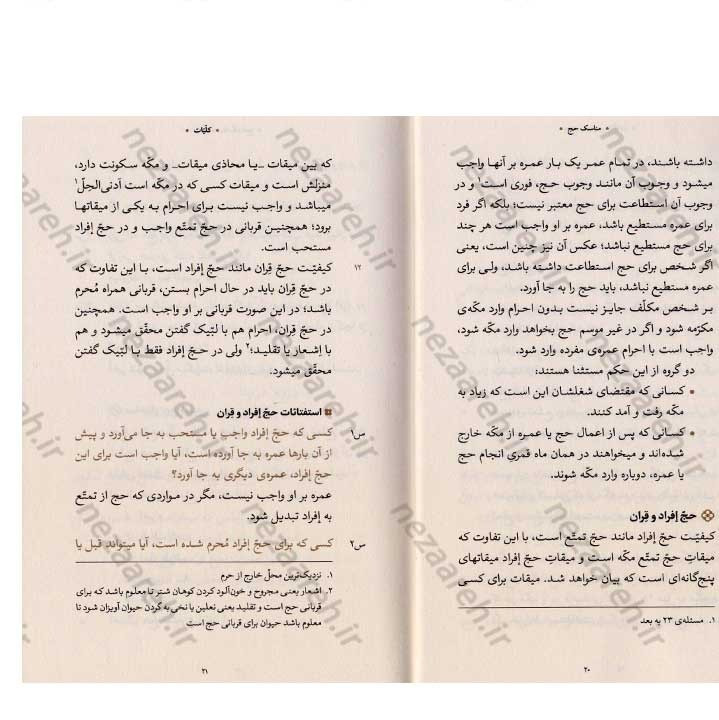 * مناسک حج *
داشته باشند، در تمام عمر یک بار عمره بر آنها واجب
میشود و وجوب آن مانند وجوب حج، فوری است۱ و در
وجوب آن استطاعت برای حج معتبر نیست؛ بلکه اگر فرد
برای عمره مستطیع باشد، عمره بر او واجب است هر چند
برای حج مستطیع نباشد؛ عکس آن نیز چنین است، یعنی
اگر شخص برای حج استطاعت داشته باشد، ولی برای
عمره مستطیع نباشد، باید حج را به جا آورد.
بر شخص مکلّف جایز نیست بدون احرام وارد مکّه‌ی
مکرّمه شود و اگر در غیر موسم حج بخواهد وارد مکّه شود،
واجب است با احرام عمره‌ی مفرده وارد شود.
دو گروه از این حکم مستثنا هستند:
• کسانی که مقتضای شغلشان این است که زیاد به
مکّه رفت و آمد کنند.
• کسانی که پس از اعمال حج یا عمره از مکّه خارج
شده‌اند و میخواهند در همان ماه قمری انجام حج
یا عمره، دوباره وارد مکّه شوند.
حجّ إفراد و قِران
کیفیّت حجّ إفراد مانند حجّ تمتّع است، با این تفاوت که
میقاتِ حجّ تمتّع مکّه است و میقاتِ حجّ إفراد میقاتهای
پنج‌گانه‌ای است که بیان خواهد شد. میقات برای کسی
۱. مسئله‌ی ۲۳ به بعد
۲۰
* کلّیّات *
که بین میقات _یا محاذی میقات_ و مکّه سکونت دارد،
منزلش است و میقات کسی که در مکّه است أدنی‌الحِلّ۱
میباشد و واجب نیست برای احرام به یکی از میقاتها
برود؛ همچنین قربانی در حجّ تمتّع واجب و در حجّ إفراد
مستحب است.
۱۲ کیفیّت حجّ قِران مانند حجّ إفراد است، با این تفاوت که
در حجّ قِران باید در حال احرام بستن، قربانی همراه مُحرم
باشد؛ در این صورت قربانی بر او واجب است. همچنین
در حجّ قِران، احرام هم با لبّیک گفتن محقّق میشود و هم
با اِشعار یا تقلید؛۲ ولی در حجّ إفراد فقط با لبّیک گفتن
محقّق میشود.
استفتائات حجّ إفراد و قِران
س۱ کسی که حجّ إفراد واجب یا مستحب به جا می‌آورد و پیش
از آن بارها عمره به جا آورده است، آیا واجب است برای این
حجّ إفراد، عمره‌ی دیگری به جا آورد؟
عمره بر او واجب نیست، مگر در مواردی که حج از تمتّع
به إفراد تبدیل شود.
س۲ کسی که برای حجّ إفراد مُحرم شده است، آیا میتواند قبل یا
۱. نزدیک‌ترین محلّ خارج از حرم
۲. اشعار یعنی مجروح و خون‌آلود کردن کوهان شتر تا معلوم باشد که برای
قربانی حج است و تقلید یعنی نعلین یا نخی به گردن حیوان آویزان شود تا
معلوم باشد حیوان برای قربانی حج است
۲۱
nezaareh.ir
nezaareh.ir
nezaareh.ir
nezaareh.ir
nezaareh.ir
nezaareh.ir